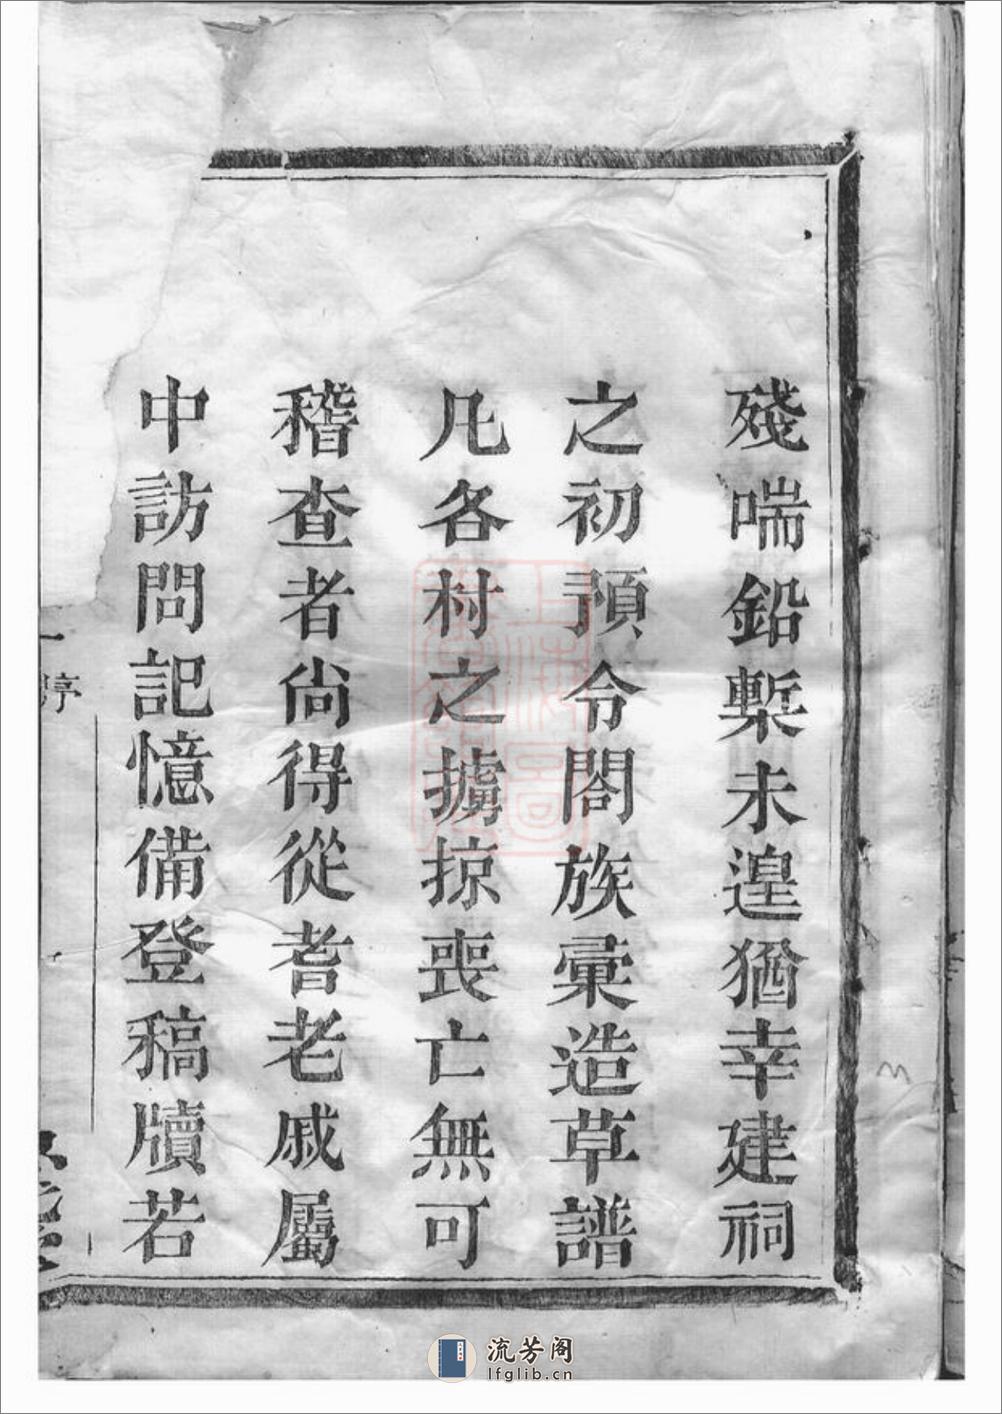 殘喘鉛槧未遑猶幸建祠
之初預令閤族彙造草譜
凡各村之擄掠喪亡無可
稽查者尙得從耆老戚屬
中訪問記憶備登稿牘若
序
一
流芳阁
lfglib.cn